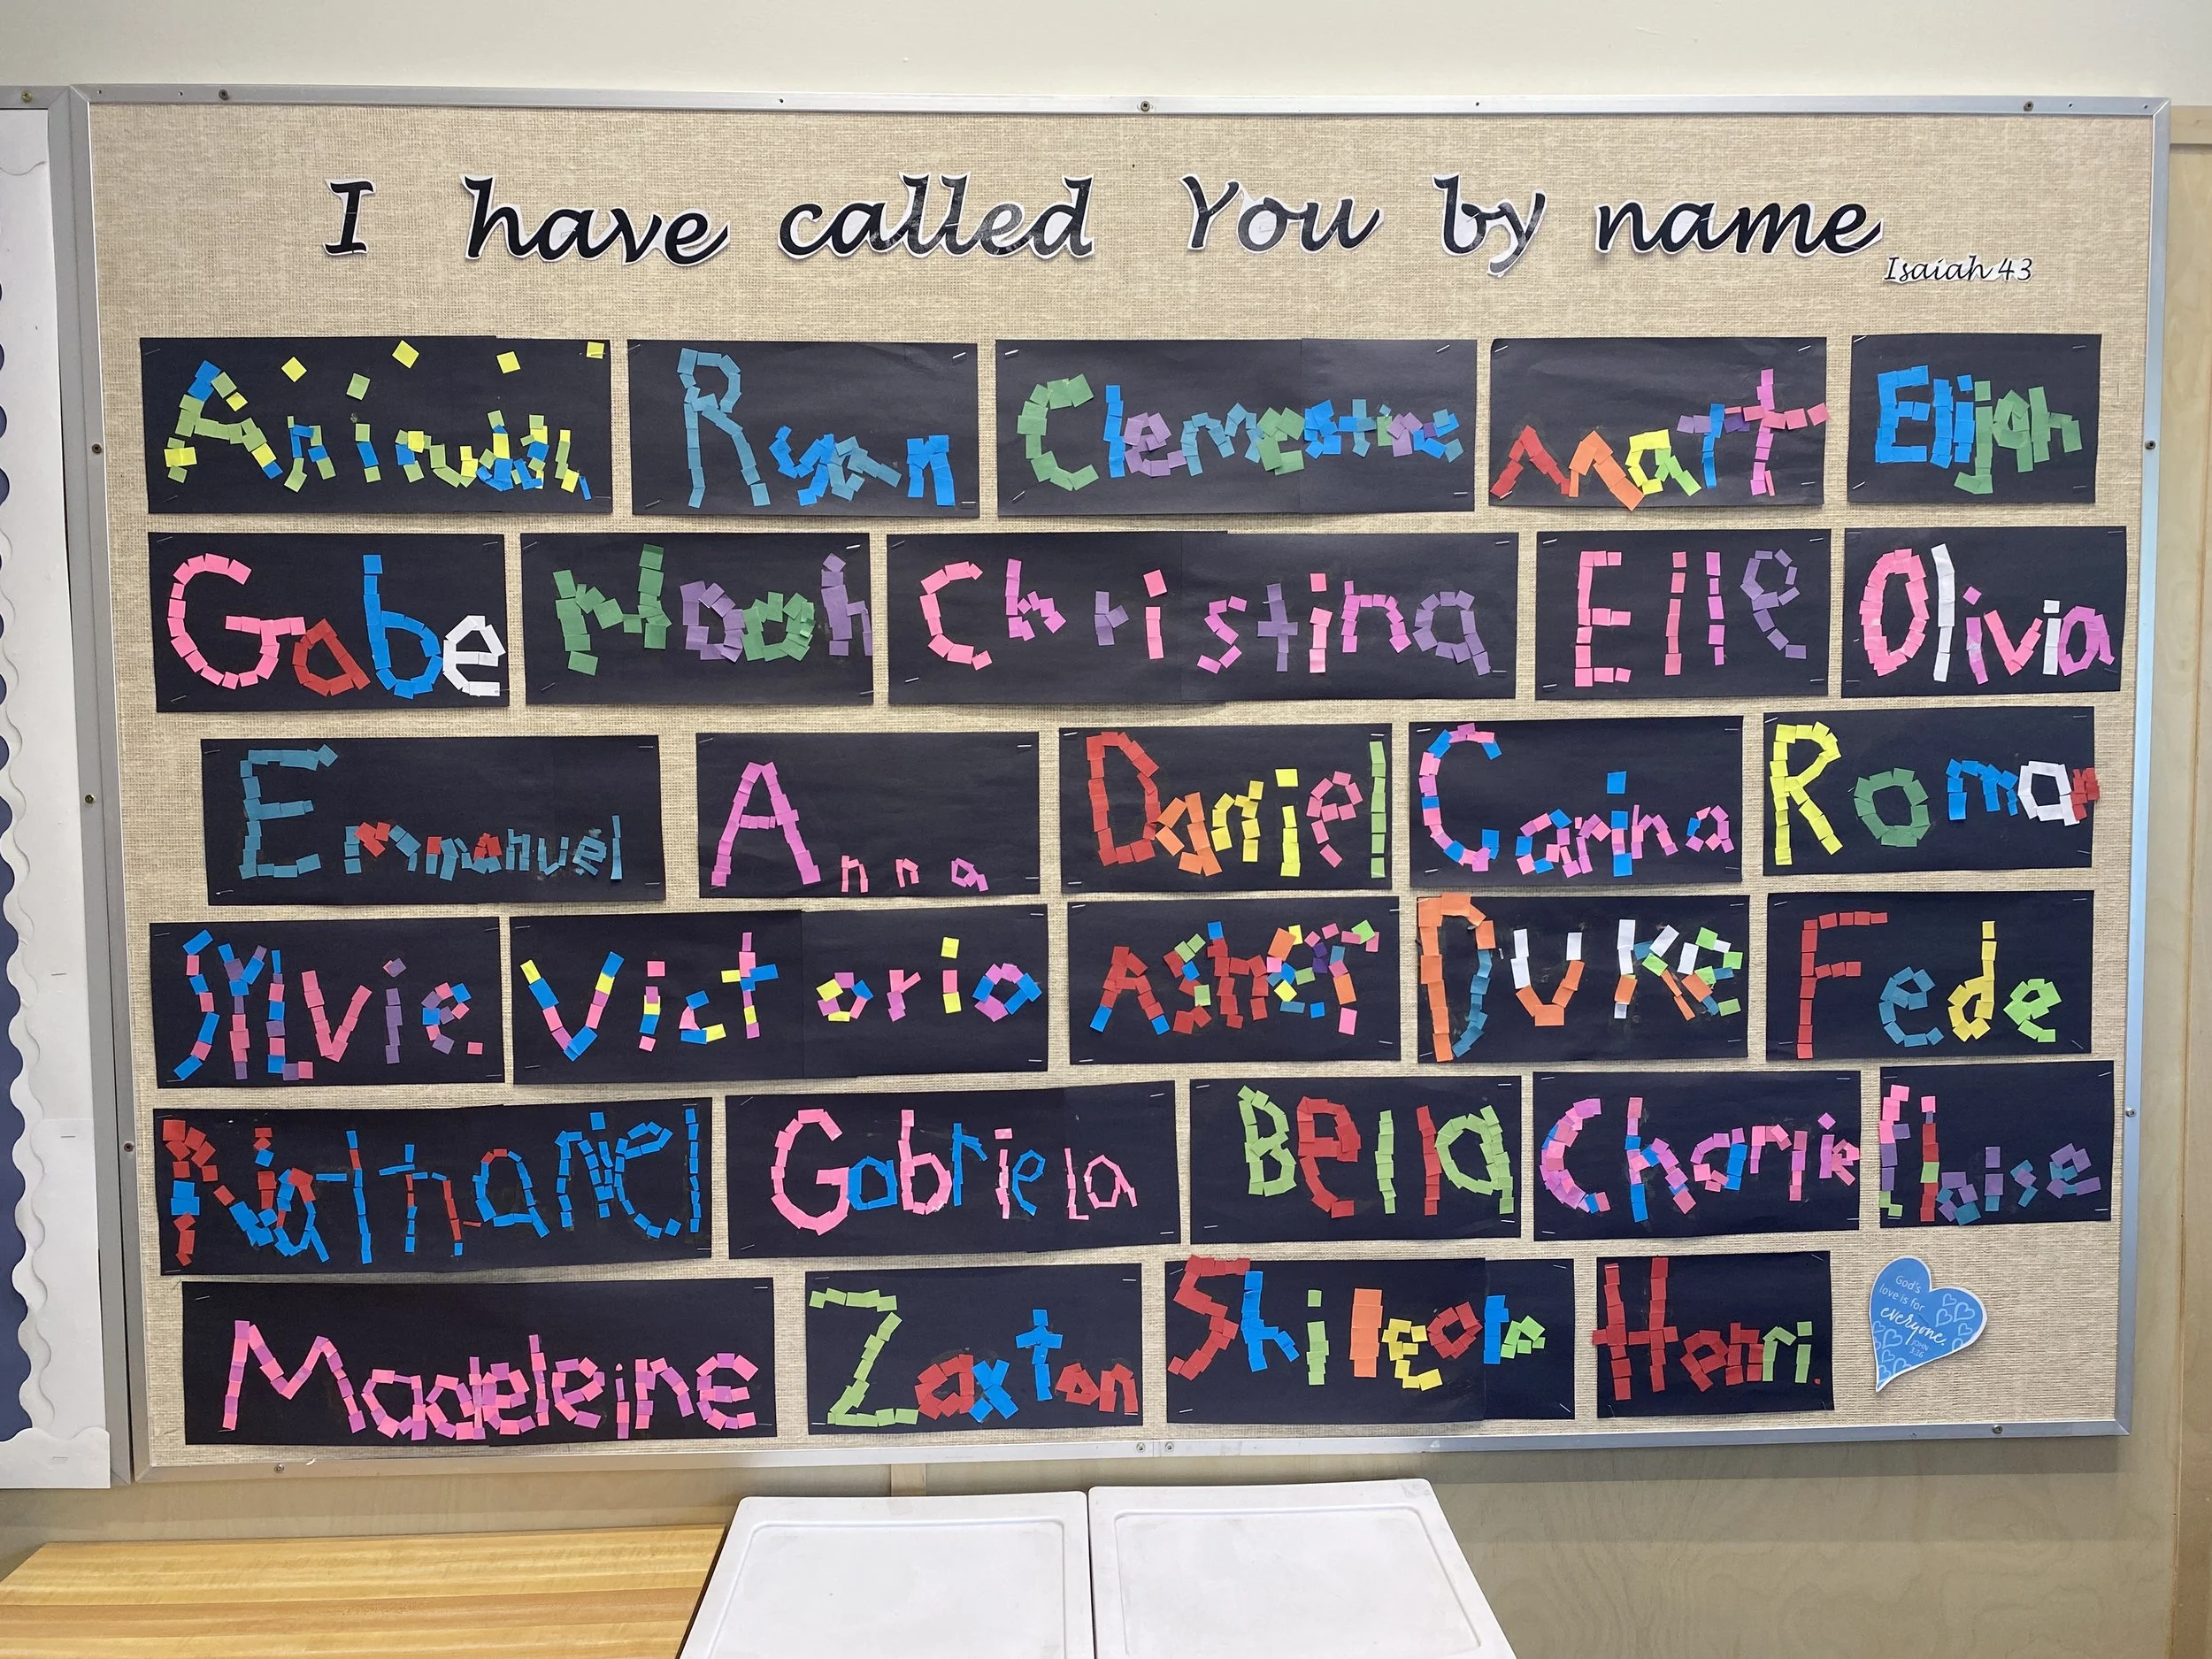 I have called You by name
Isaiah 43
Ryan Clementine Matt Elijah
Gabe Noah Christina Elle Olivia
Emmanuel Anna Daniel Carina Roman
Sylvie. Victoria Asher Duke Fede
Nathaniel Gabriela Bella Charlie Eloise
Madeleine Zaxton Henri.
God's
love is for
everyone.
JOHN
3:16